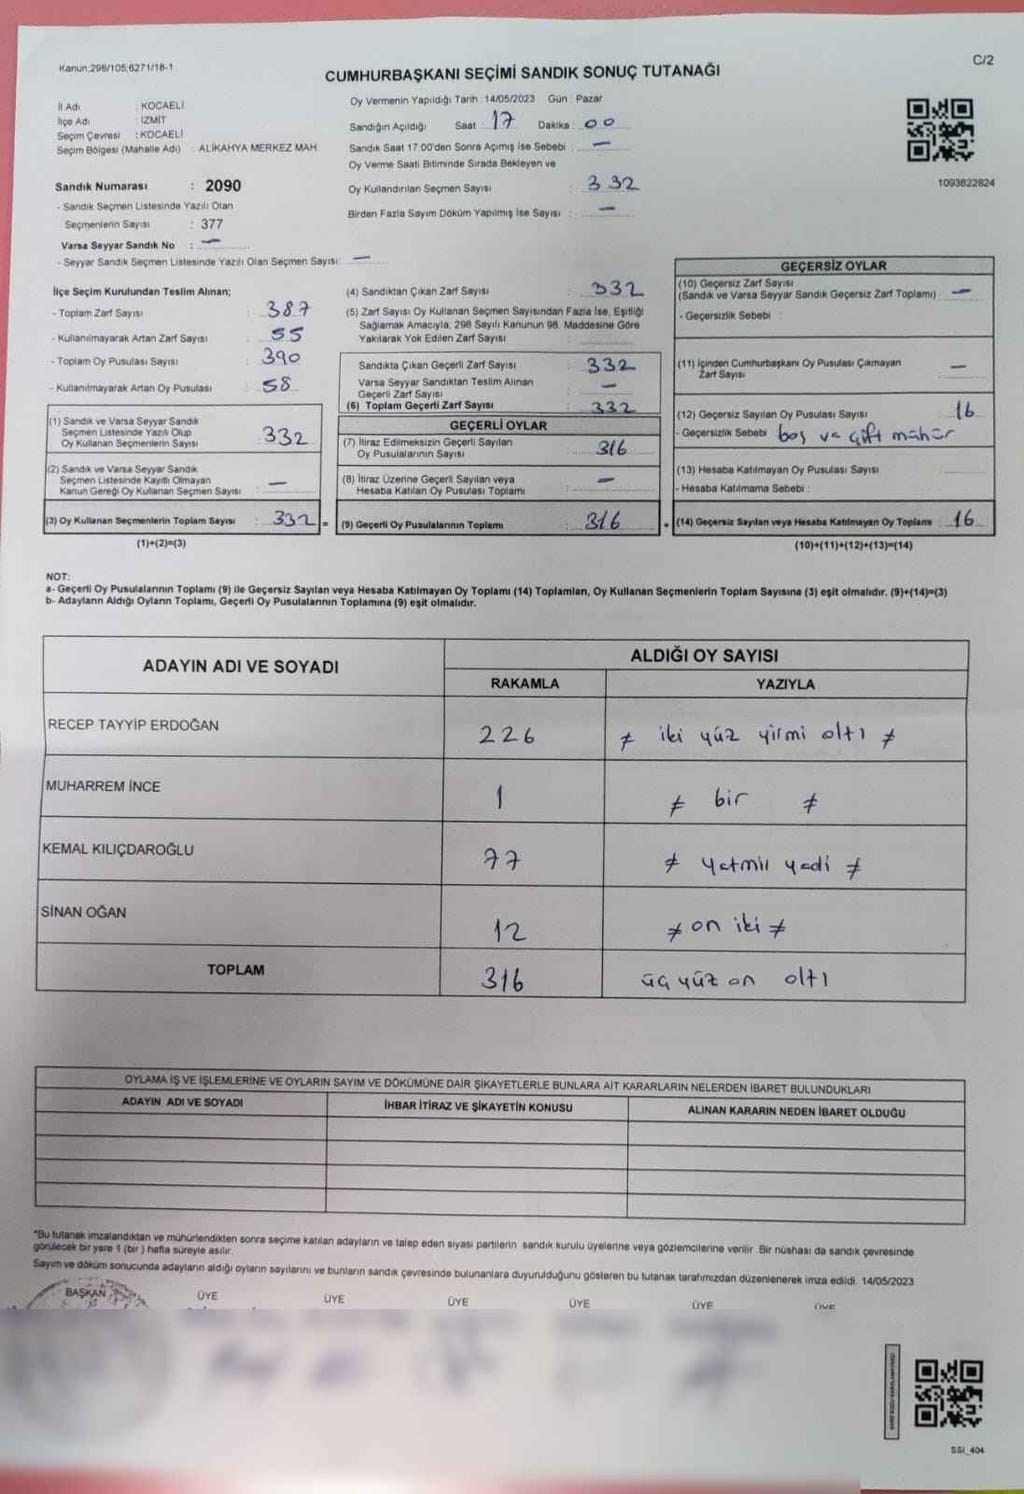 Kanun:298/105;6271/18-1
C/2
CUMHURBAŞKANI SEÇİMİ SANDIK SONUÇ TUTANAĞI
İl Adı : KOCAELİ
İlçe Adı : İZMİT
Seçim Çevresi : KOCAELİ
Seçim Bölgesi (Mahalle Adı) : ALİKAHYA MERKEZ MAH.
Sandık Numarası : 2090
- Sandık Seçmen Listesinde Yazılı Olan
Seçmenlerin Sayısı : 377
Varsa Seyyar Sandık No : —
- Seyyar Sandık Seçmen Listesinde Yazılı Olan Seçmen Sayısı: —
Oy Vermenin Yapıldığı Tarih : 14/05/2023 Gün : Pazar
Sandığın Açıldığı Saat : 17 Dakika : 00
Sandık Saat 17:00'den Sonra Açılmış İse Sebebi : —
Oy Verme Saati Bitiminde Sırada Bekleyen ve
Oy Kullandırılan Seçmen Sayısı : 332
Birden Fazla Sayım Döküm Yapılmış İse Sayısı : —
1093822824
İlçe Seçim Kurulundan Teslim Alınan;
- Toplam Zarf Sayısı : 387
- Kullanılmayarak Artan Zarf Sayısı : 55
- Toplam Oy Pusulası Sayısı : 390
- Kullanılmayarak Artan Oy Pusulası : 58
(1) Sandık ve Varsa Seyyar Sandık
Seçmen Listesinde Yazılı Olup
Oy Kullanan Seçmenlerin Sayısı : 332
(2) Sandık ve Varsa Seyyar Sandık
Seçmen Listesinde Kayıtlı Olmayan
Kanun Gereği Oy Kullanan Seçmen Sayısı : —
(3) Oy Kullanan Seçmenlerin Toplam Sayısı : 332 =
(1)+(2)=(3)
(4) Sandıktan Çıkan Zarf Sayısı : 332
(5) Zarf Sayısı Oy Kullanan Seçmen Sayısından Fazla İse, Eşitliği
Sağlamak Amacıyla, 298 Sayılı Kanunun 98. Maddesine Göre
Yakılarak Yok Edilen Zarf Sayısı :
Sandıkta Çıkan Geçerli Zarf Sayısı : 332
Varsa Seyyar Sandıktan Teslim Alınan
Geçerli Zarf Sayısı : —
(6) Toplam Geçerli Zarf Sayısı : 332
GEÇERLİ OYLAR
(7) İtiraz Edilmeksizin Geçerli Sayılan
Oy Pusulalarının Sayısı : 316
(8) İtiraz Üzerine Geçerli Sayılan veya
Hesaba Katılan Oy Pusulası Toplamı : —
(9) Geçerli Oy Pusulalarının Toplamı : 316 +
GEÇERSİZ OYLAR
(10) Geçersiz Zarf Sayısı
(Sandık ve Varsa Seyyar Sandık Geçersiz Zarf Toplamı) : —
- Geçersizlik Sebebi :
(11) İçinden Cumhurbaşkanı Oy Pusulası Çıkmayan
Zarf Sayısı : —
(12) Geçersiz Sayılan Oy Pusulası Sayısı : 16
- Geçersizlik Sebebi : boş ve çift mühür
(13) Hesaba Katılmayan Oy Pusulası Sayısı :
- Hesaba Katılmama Sebebi :
(14) Geçersiz Sayılan veya Hesaba Katılmayan Oy Toplamı : 16
(10)+(11)+(12)+(13)=(14)
NOT:
a- Geçerli Oy Pusulalarının Toplamı (9) ile Geçersiz Sayılan veya Hesaba Katılmayan Oy Toplamı (14) Toplamları, Oy Kullanan Seçmenlerin Toplam Sayısına (3) eşit olmalıdır. (9)+(14)=(3)
b- Adayların Aldığı Oyların Toplamı, Geçerli Oy Pusulalarının Toplamına (9) eşit olmalıdır.
ADAYIN ADI VE SOYADI
ALDIĞI OY SAYISI
RAKAMLA YAZIYLA
RECEP TAYYİP ERDOĞAN 226 ≠ iki yüz yirmi altı ≠
MUHARREM İNCE 1 ≠ bir ≠
KEMAL KILIÇDAROĞLU 77 ≠ yetmiş yedi ≠
SİNAN OĞAN 12 ≠ on iki ≠
TOPLAM 316 üç yüz on altı
OYLAMA İŞ VE İŞLEMLERİNE VE OYLARIN SAYIM VE DÖKÜMÜNE DAİR ŞİKAYETLERLE BUNLARA AİT KARARLARIN NELERDEN İBARET BULUNDUKLARI
ADAYIN ADI VE SOYADI İHBAR İTİRAZ VE ŞİKAYETİN KONUSU ALINAN KARARIN NEDEN İBARET OLDUĞU
*Bu tutanak imzalandıktan ve mühürlendikten sonra seçime katılan adayların ve talep eden siyasi partilerin sandık kurulu üyelerine veya gözlemcilerine verilir. Bir nüshası da sandık çevresinde
görülecek bir yere 1 (bir ) hafta süreyle asılır.
Sayım ve döküm sonucunda adayların aldığı oyların sayılarını ve bunların sandık çevresinde bulunanlara duyurulduğunu gösteren bu tutanak tarafımızdan düzenlenerek imza edildi. 14/05/2023
BAŞKAN ÜYE ÜYE ÜYE ÜYE ÜYE ÜYE
SSI_404